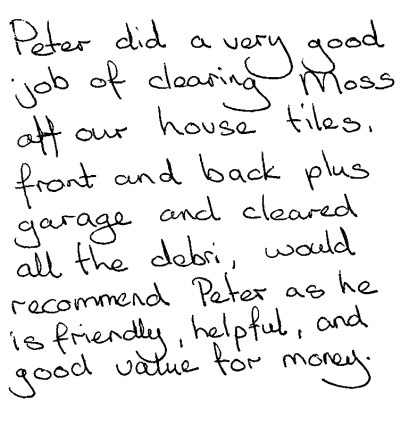 Peter did a very good
job of clearing Moss
off our house tiles,
front and back plus
garage and cleared
all the debri, would
recommend Peter as he
is friendly, helpful, and
good value for money.